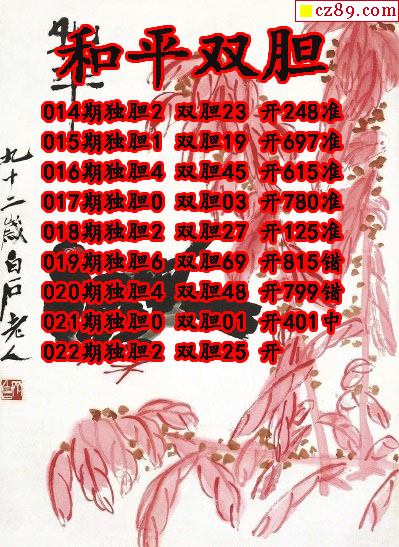 cz89.com
和平双胆
014期独胆2 双胆23 开248准
015期独胆1 双胆19 开697准
016期独胆4 双胆45 开615准
017期独胆0 双胆03 开780准
018期独胆2 双胆27 开125准
019期独胆6 双胆69 开815错
020期独胆4 双胆48 开799错
021期独胆0 双胆01 开401中
022期独胆2 双胆25 开
和平
九十二岁白石老人